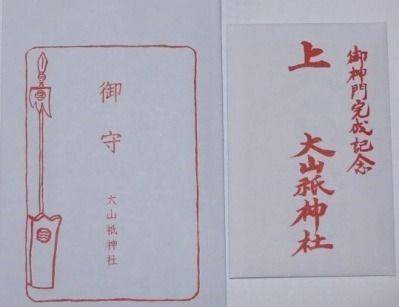 御守
大山祇神社
御神門完成記念
上
大山祇神社